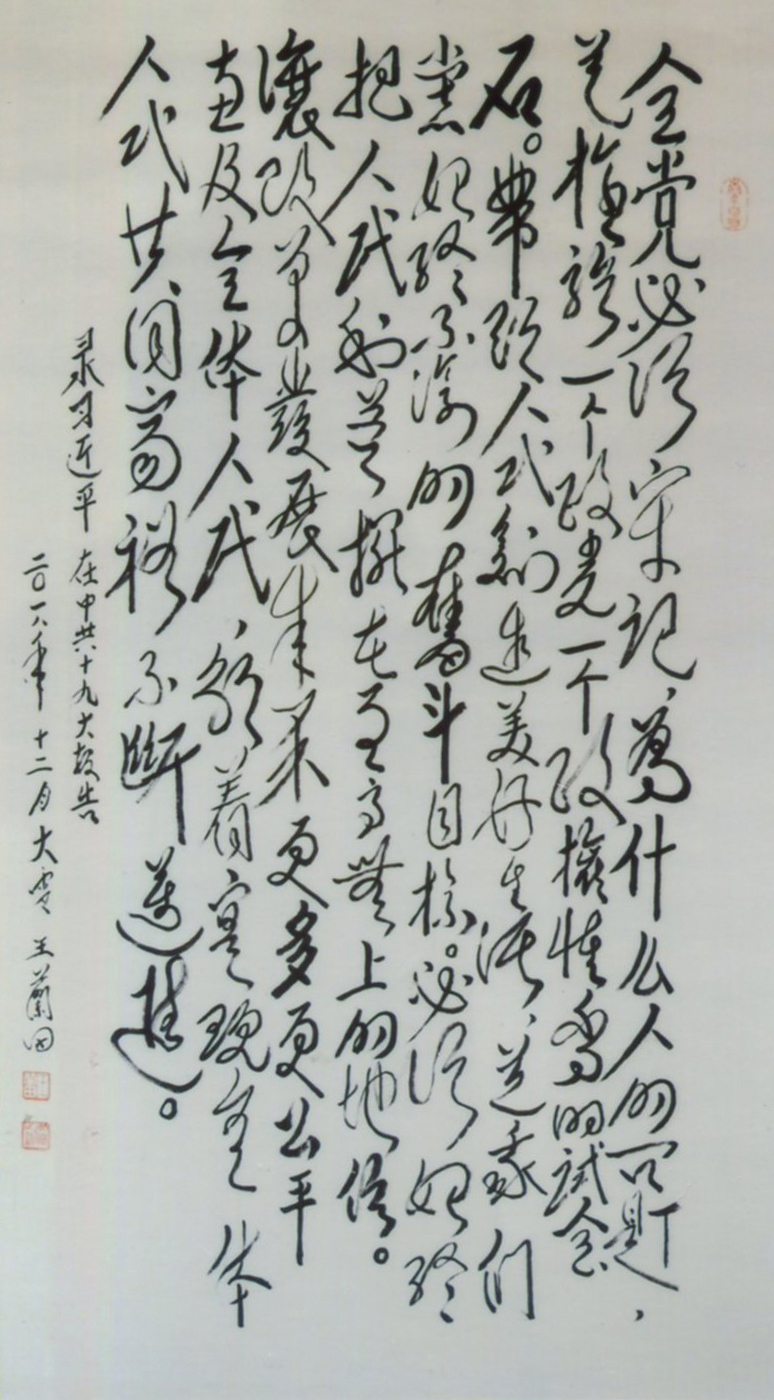 全党必须牢记,為什么人的问题,
是檢验一个政党一个政權性质的试金
石。带领人民創造美好生活,是我们
黨始终不渝的奮斗目标。必须始终
把人民利益摆在至高無上的地位。
讓改革發展成果更多更公平
惠及全体人民,朝着寔现全体
人民共同富裕不斷邁進。
录习近平 在中共十九大报告
二〇一八年十二月大雪 王蘭田